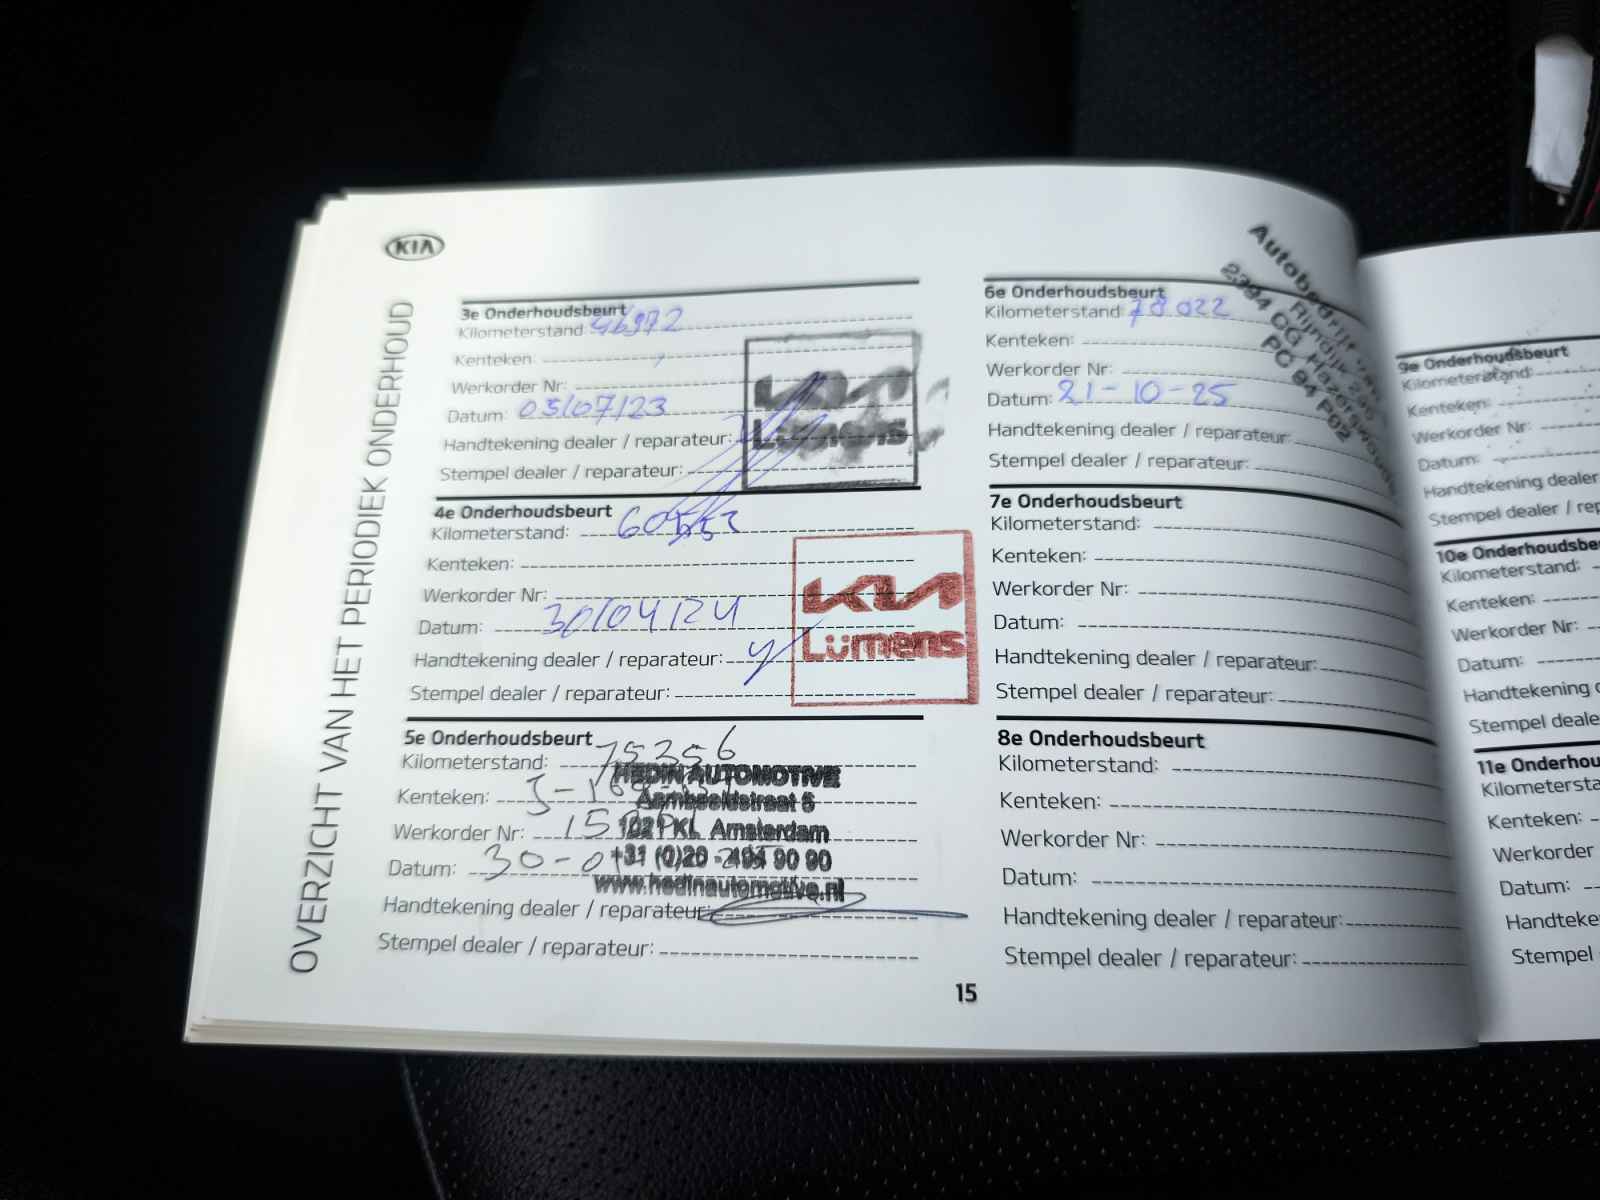 KIA
OVERZICHT VAN HET PERIODIEK ONDERHOUD
3e Onderhoudsbeurt
Kilometerstand: 46972
Kenteken:
Werkorder Nr:
Datum: 03/07/23
Handtekening dealer / reparateur:
Stempel dealer / reparateur:
KIA
Lümens
4e Onderhoudsbeurt
Kilometerstand:
Kenteken:
Werkorder Nr:
Datum: 30/04/24
Handtekening dealer / reparateur:
Stempel dealer / reparateur:
KIA
Lümens
5e Onderhoudsbeurt
Kilometerstand: 75356
Kenteken:
Werkorder Nr:
Datum:
Handtekening dealer / reparateur:
Stempel dealer / reparateur:
HEDIN AUTOMOTIVE
Aambeeldstraat 5
1021 KL Amsterdam
+31 (0)20 - 494 90 90
www.hedinautomotive.nl
6e Onderhoudsbeurt
Kilometerstand: 78.022
Kenteken:
Werkorder Nr:
Datum: 21-10-25
Handtekening dealer / reparateur:
Stempel dealer / reparateur:
Autobedrijf van
Rijndijk
2394 CG Hazerswoude
7e Onderhoudsbeurt
Kilometerstand:
Kenteken:
Werkorder Nr:
Datum:
Handtekening dealer / reparateur:
Stempel dealer / reparateur:
8e Onderhoudsbeurt
Kilometerstand:
Kenteken:
Werkorder Nr:
Datum:
Handtekening dealer / reparateur:
Stempel dealer / reparateur:
15
9e Onderhoudsbeurt
Kilometerstand:
Kenteken:
Werkorder Nr:
Datum:
Handtekening dealer
Stempel dealer / rep
10e Onderhoudsbe
Kilometerstand:
Kenteken:
Werkorder Nr:
Datum:
Handtekening
Stempel dealer
11e Onderhou
Kilometersta
Kenteken:
Werkorder
Datum:
Handteke
Stempel